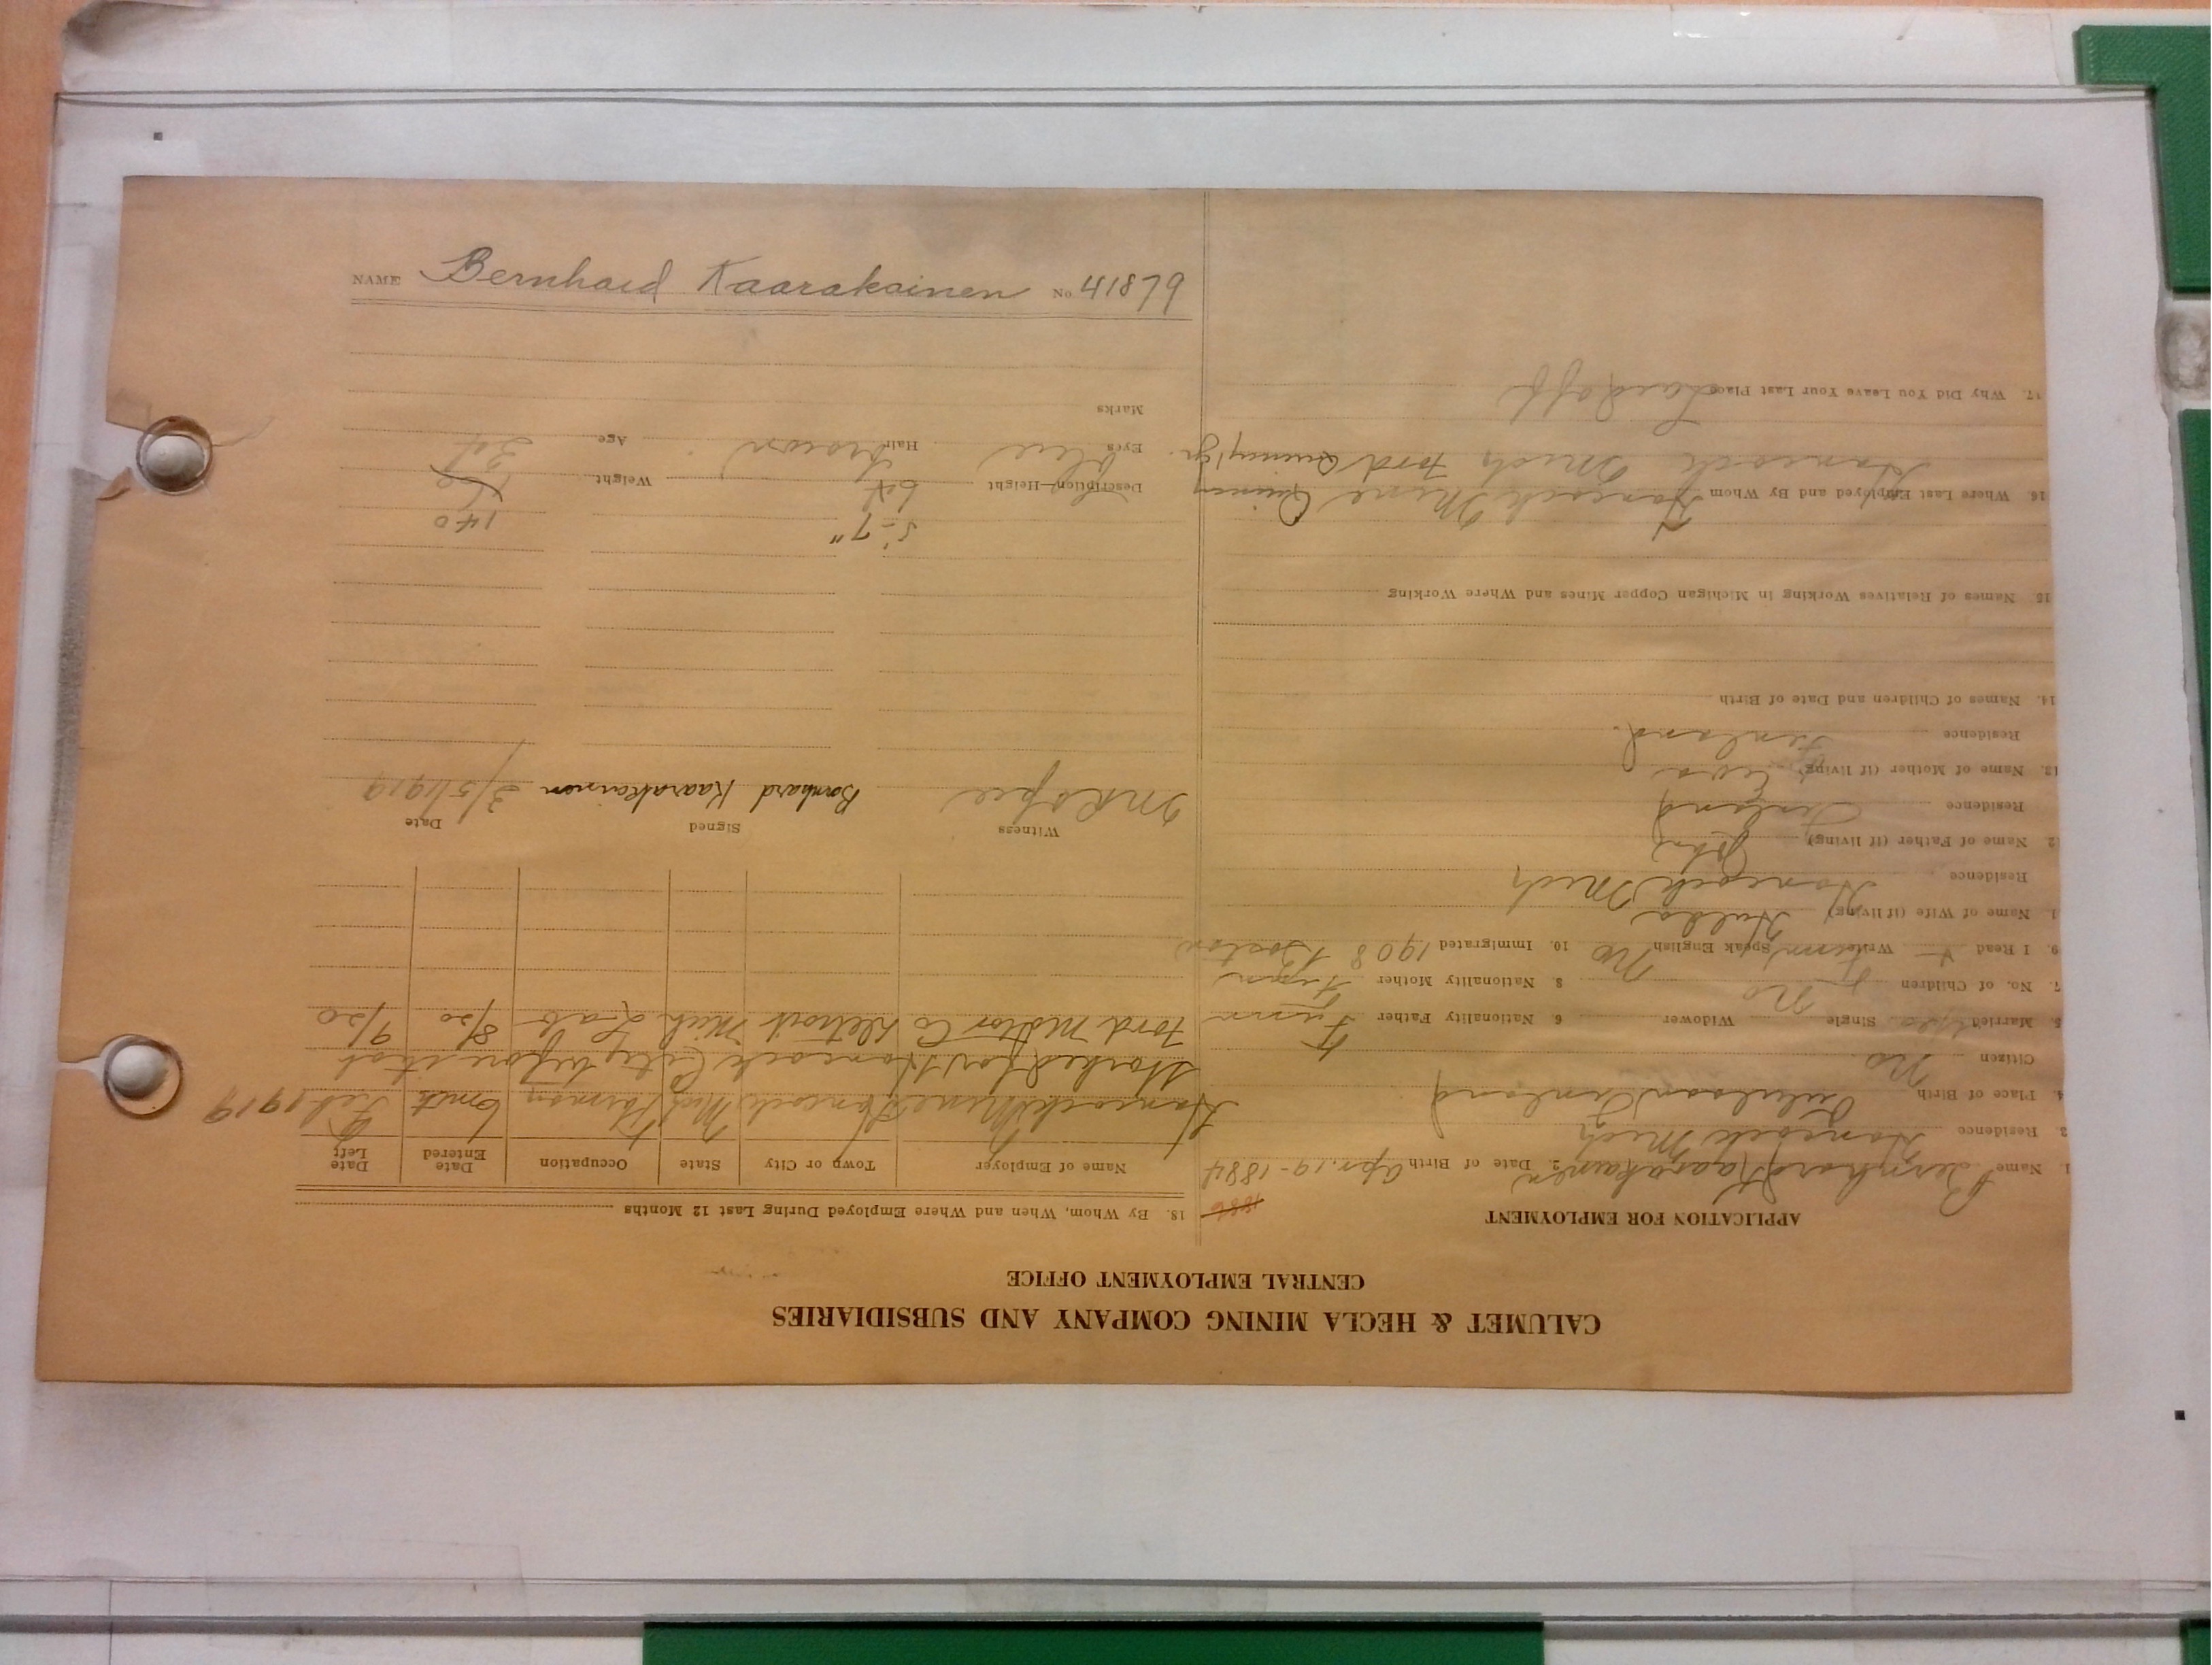 CALUMET & HECLA MINING COMPANY AND SUBSIDIARIES
CENTRAL EMPLOYMENT OFFICE
APPLICATION FOR EMPLOYMENT
1886
1. Name Bernhard Kaarakainen 2. Date of Birth Apr. 19-1884
3. Residence Hancock Mich
4. Place of Birth Finland
Citizen No
5. Married Yes Single Widower 6. Nationality Father Finn
7. No. of Children No 8. Nationality Mother Finn
9. I Read Write Finn Speak English No 10. Immigrated 1908 Boston
11. Name of Wife (if living) Hulda
Residence Hancock Mich
12. Name of Father (if living) John
Residence Finland
13. Name of Mother (if living) Eva
Residence Finland.
14. Names of Children and Date of Birth
15. Names of Relatives Working in Michigan Copper Mines and Where Working
16. Where Last Employed and By Whom Hancock Mine Quincy
Hancock Mich Ford Quincy
17. Why Did You Leave Your Last Place Laid off
18. By Whom, When and Where Employed During Last 12 Months
Name of Employer Town or City State Occupation Date Entered Date Left
Hancock Mine Hancock Mich 6 mth Feb 1919
Worked for Hancock City before that
Ford Motor Co Detroit Mich Lab 8/20 9/20
Witness Signed Date
Bernhard Kaarakainen 3/5/1919
5'-7" 140
Description—Height Weight
Eyes blue Hair brown Age 34
Marks
NAME Bernhard Kaarakainen No 41879